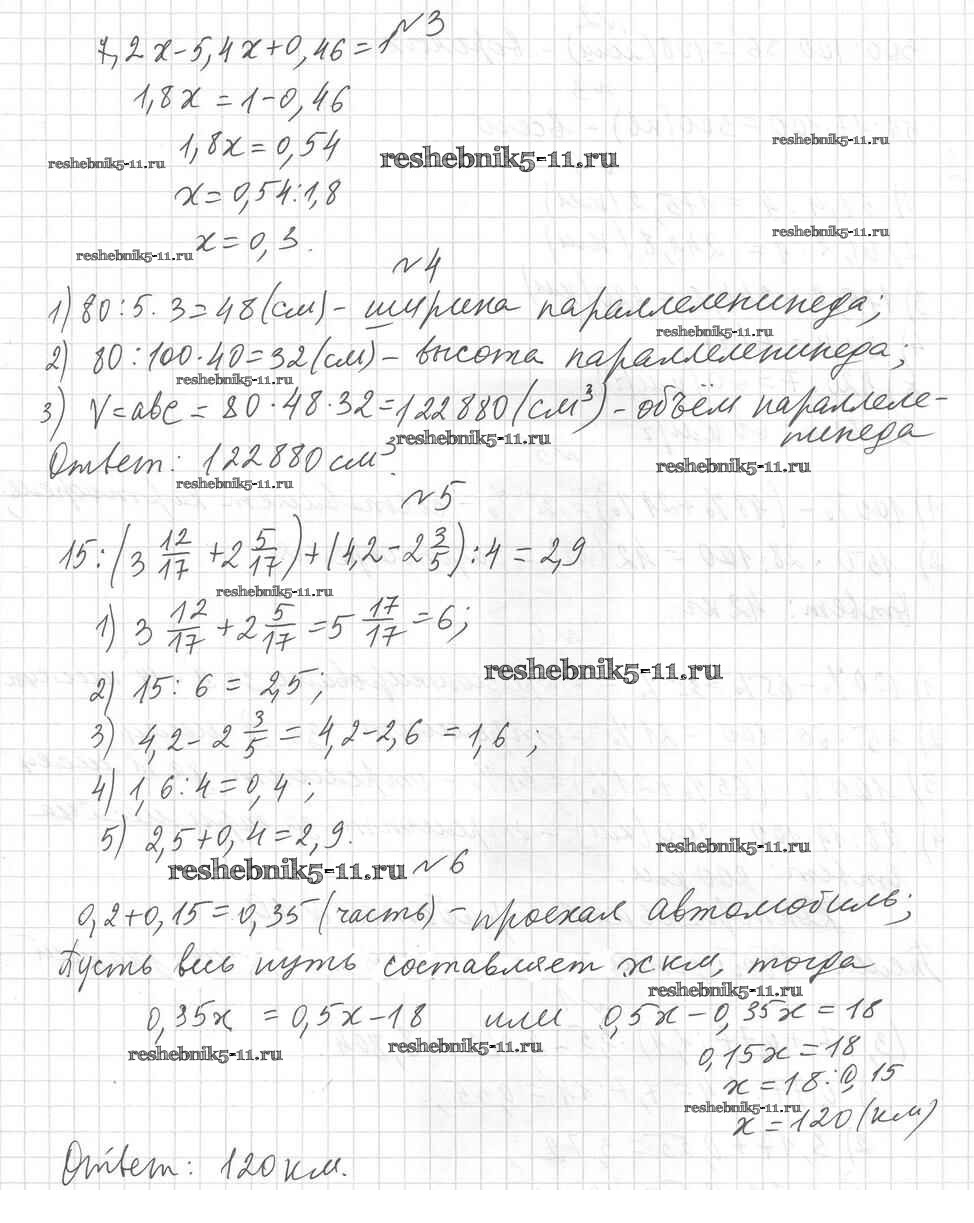 №3
7,2x-5,4x+0,46=1
1,8x=1-0,46
1,8x=0,54
reshebnik5-11.ru
reshebnik5-11.ru
reshebnik5-11.ru
x=0,54:1,8
x=0,3.
reshebnik5-11.ru
reshebnik5-11.ru
№4
1) 80:5·3=48(см)- ширина параллелепипеда;
reshebnik5-11.ru
2) 80:100·40=32(см)- высота параллелепипеда;
reshebnik5-11.ru
3) V=abc=80·48·32=122880(см³)- объём параллеле-
пипеда
reshebnik5-11.ru
Ответ: 122880см³.
reshebnik5-11.ru
reshebnik5-11.ru
№5
15:(3 12/17+2 5/17)+(4,2-2 3/5):4=2,9
reshebnik5-11.ru
1) 3 12/17+2 5/17=5 17/17=6;
reshebnik5-11.ru
2) 15:6=2,5;
3) 4,2-2 3/5=4,2-2,6=1,6;
4) 1,6:4=0,4;
5) 2,5+0,4=2,9.
reshebnik5-11.ru
reshebnik5-11.ru
№6
0,2+0,15=0,35(часть)- проехал автомобиль;
Пусть весь путь составляет x км, тогда
reshebnik5-11.ru
0,35x=0,5x-18 или 0,5x-0,35x=18
reshebnik5-11.ru
reshebnik5-11.ru
0,15x=18
x=18:0,15
reshebnik5-11.ru
x=120(км)
Ответ: 120км.